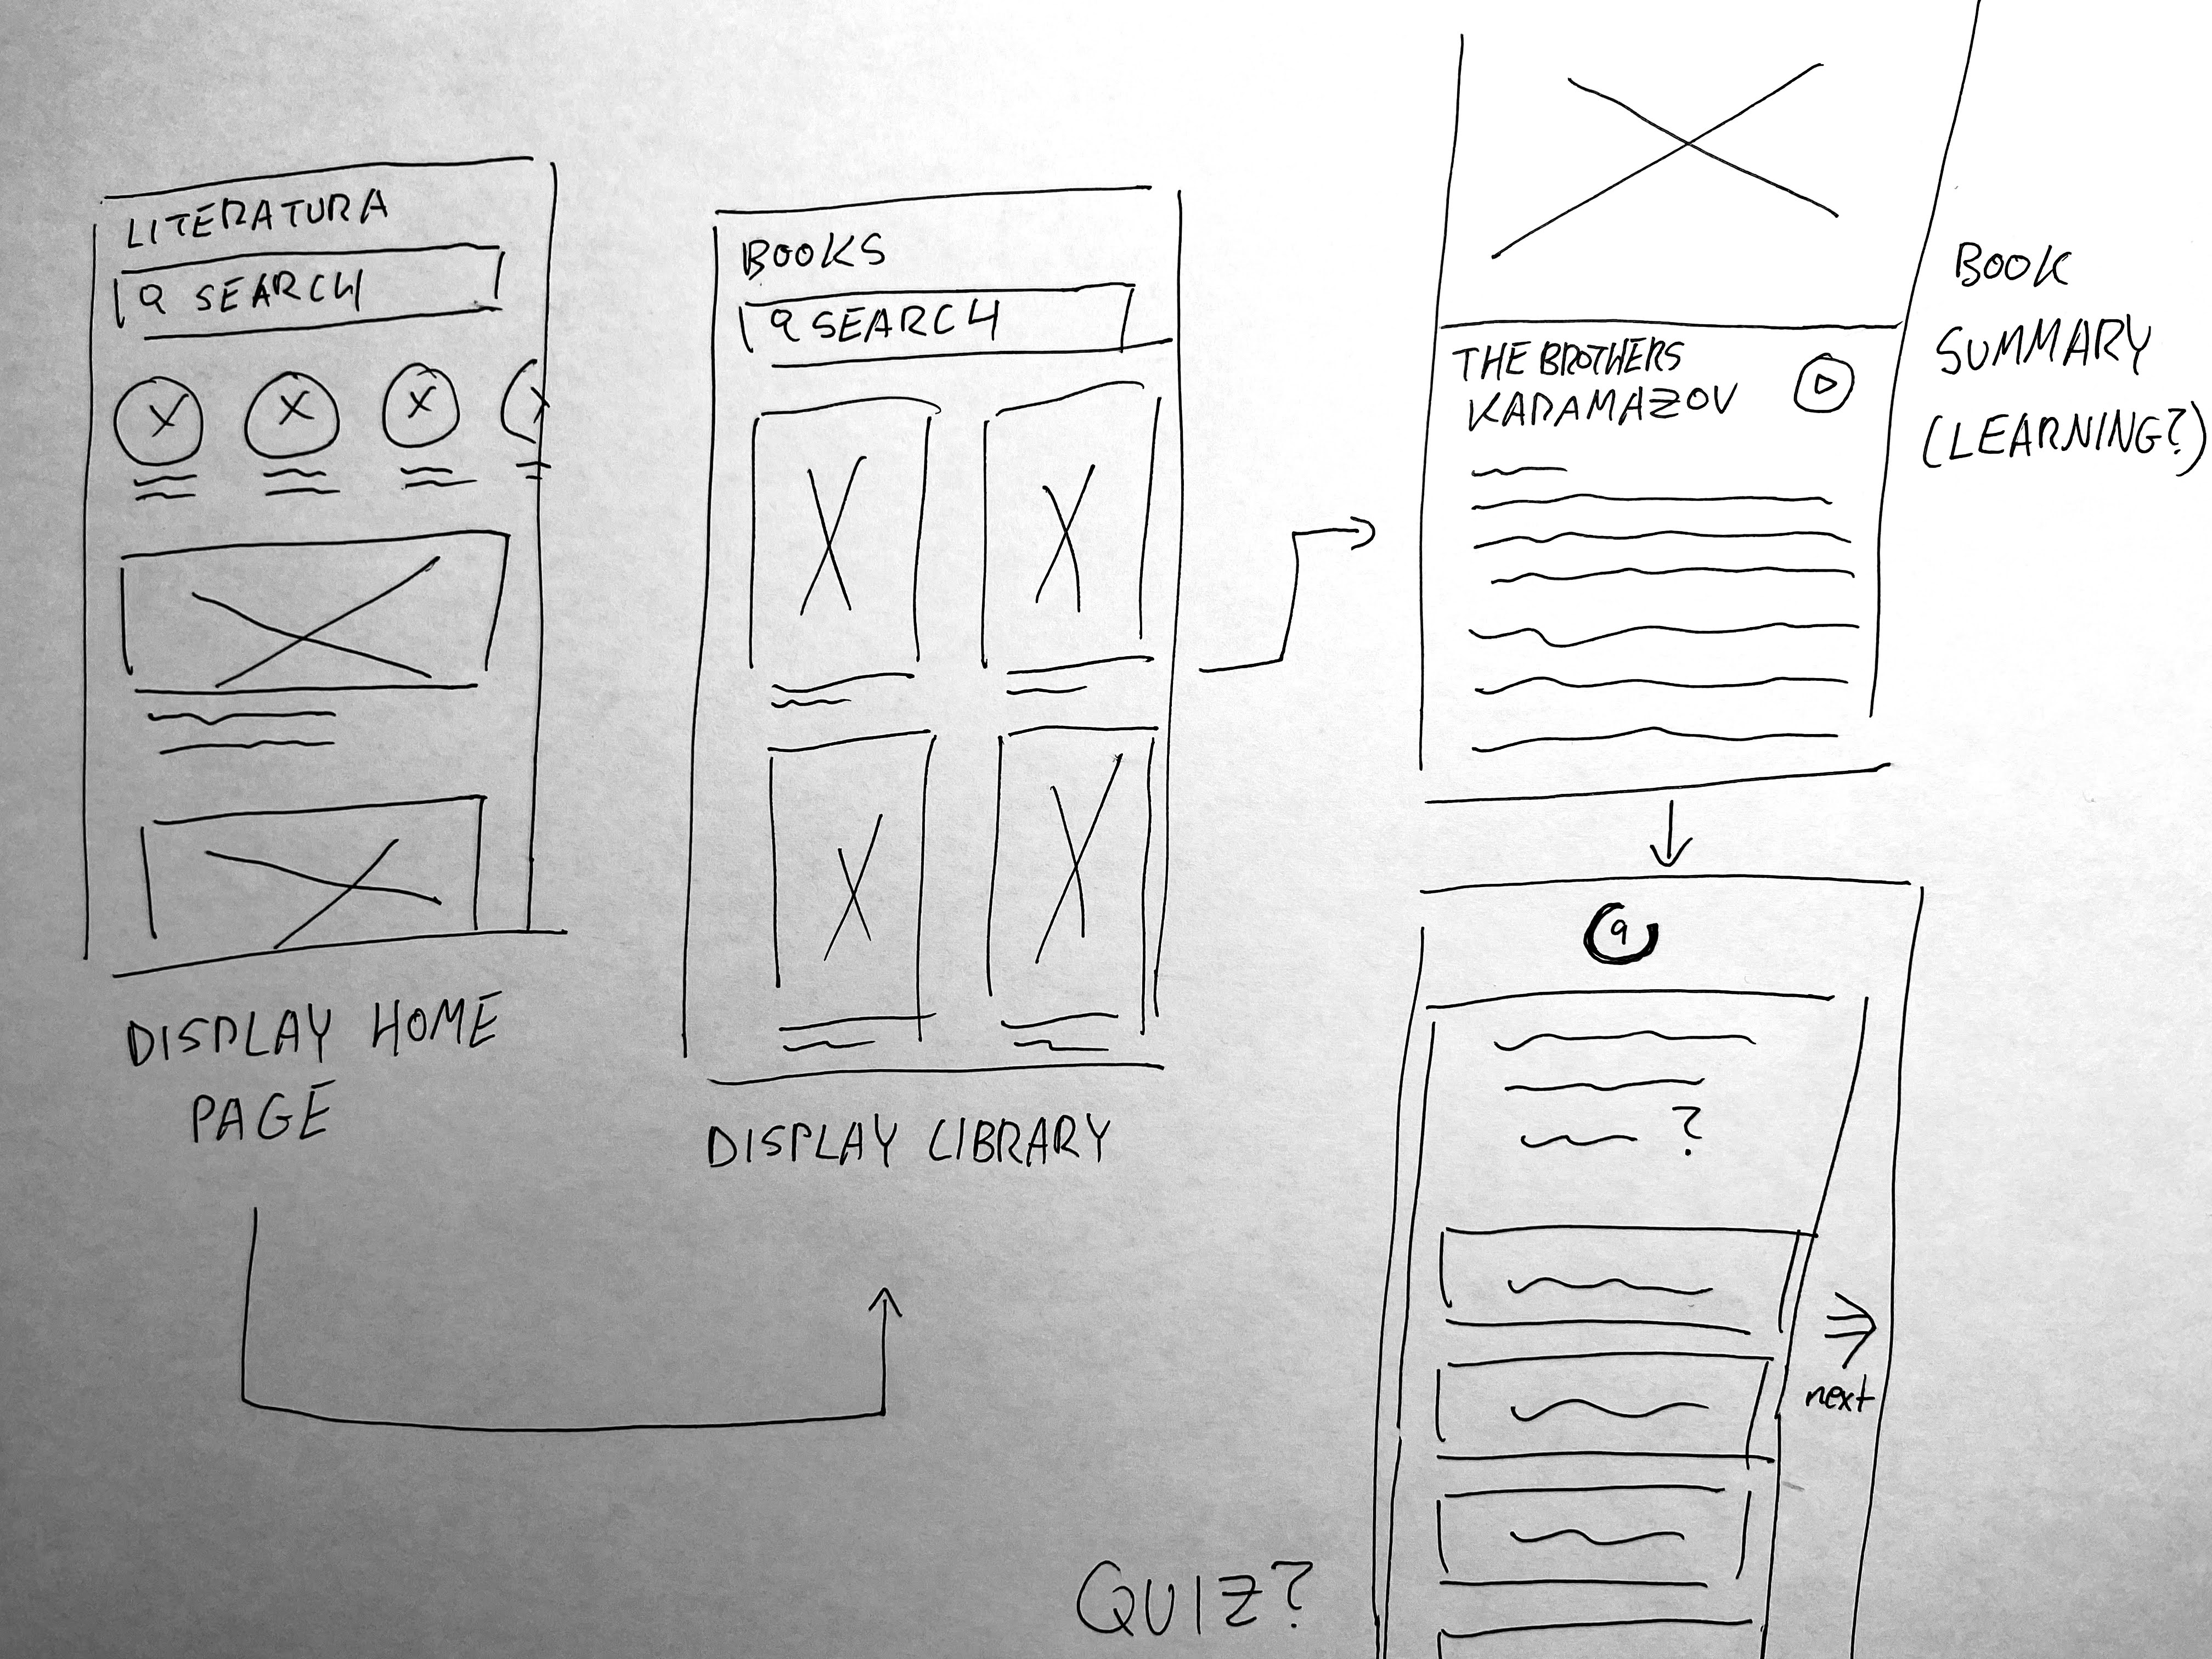 LITERATURA
SEARCH
DISPLAY HOME
PAGE
BOOKS
SEARCH
DISPLAY LIBRARY
THE BROTHERS
KARAMAZOV
BOOK
SUMMARY
(LEARNING?)
9
?
next
QUIZ?